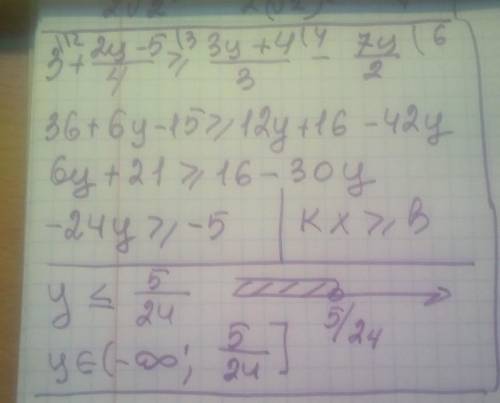 3⁽¹² + (2y-5)/4 ⁽³ ≥ (3y+4)/3 ⁽⁴ - 7y/2 ⁽⁶
36+6y-15≥12y+16-42y
6y+21≥16-30y
-24y≥-5 | Kx≥B
y ≤ 5/24
5/24
y∈(-∞; 5/24]